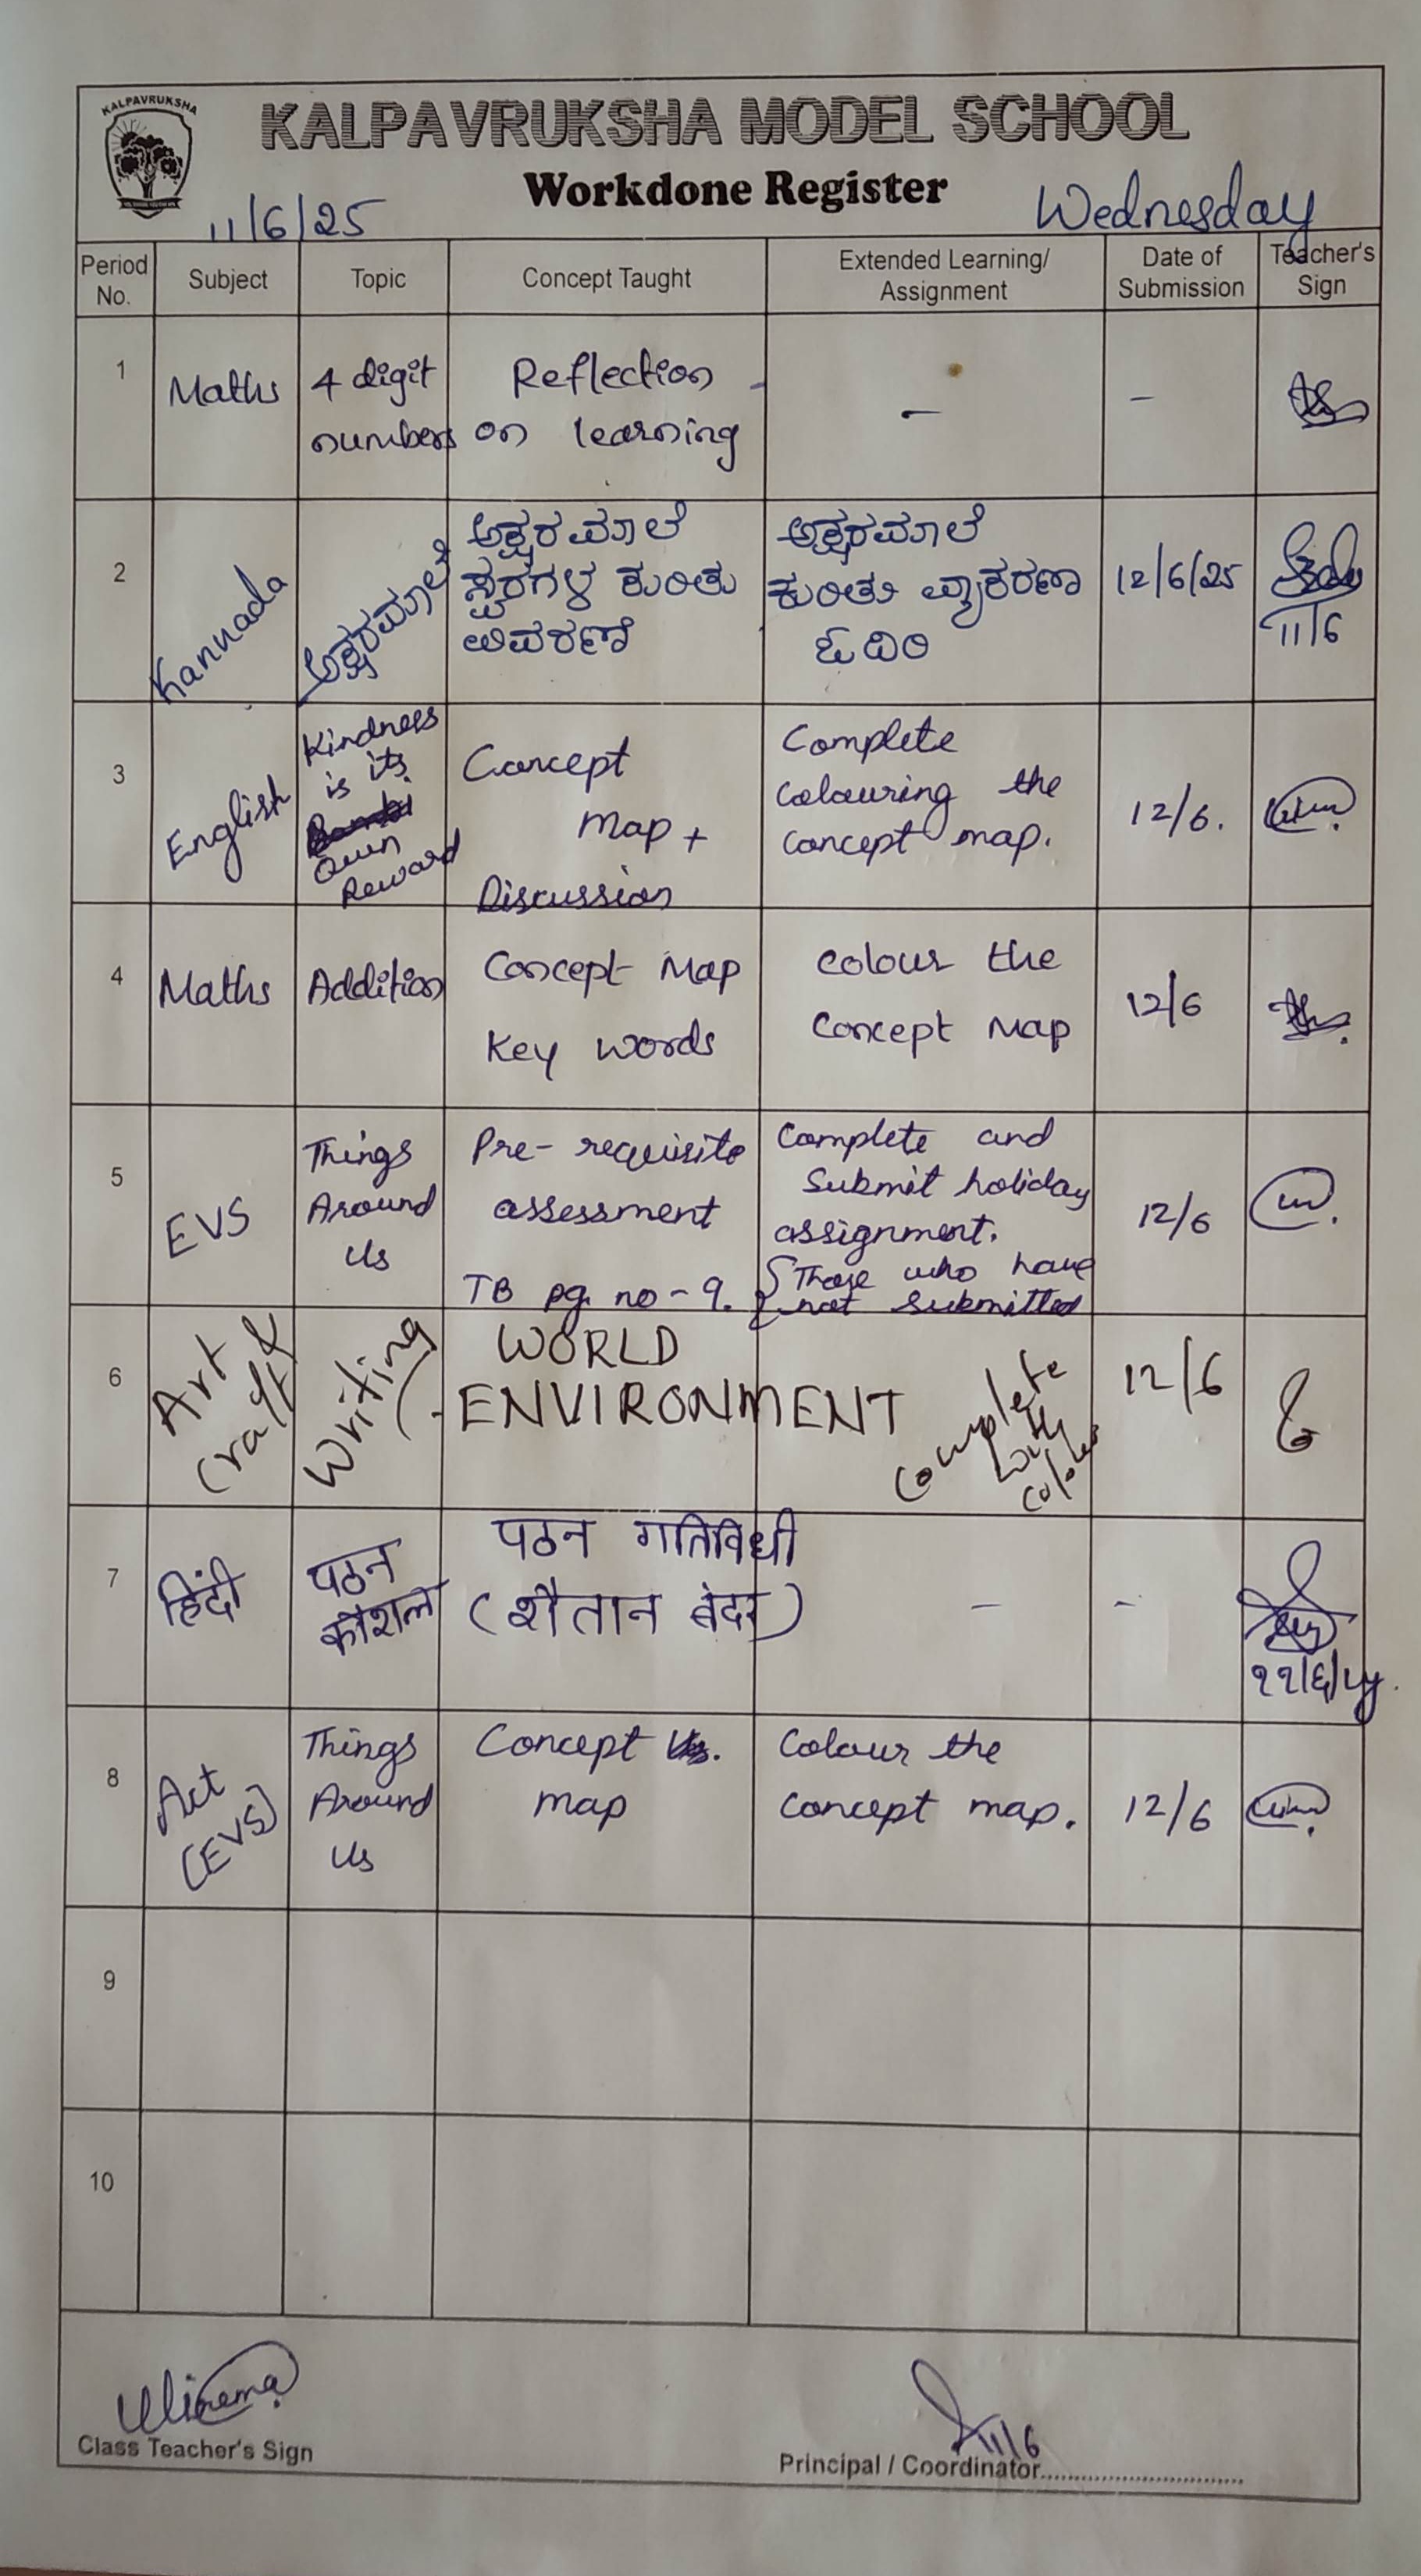 KALPAVRUKSHA
KALPAVRUKSHA MODEL SCHOOL
Workdone Register
11/6/25
Wednesday
Period No.
Subject
Topic
Concept Taught
Extended Learning/ Assignment
Date of Submission
Teacher's Sign
1
Maths
4 digit
numbers
Reflection
on learning
-
-
2
Kannada
ಅಕ್ಷರಮಾಲೆ
ಅಕ್ಷರಮಾಲೆ
ಸ್ವರಗಳ ಕುರಿತು
ವಿವರಣೆ
ಅಕ್ಷರಮಾಲೆ
ಕುರಿತು ವ್ಯಾಕರಣಾ
ಓದಿರಿ
12/6/25
11/6
3
English
Kindness
is its
Own
Reward
Concept
Map +
Discussion
Complete
colouring the
concept map.
12/6.
4
Maths
Addition
Concept Map
Key words
Colour the
Concept Map
12/6
5
EVS
Things
Around
Us
Pre-requisite
assessment
TB pg. no - 9.
Complete and
Submit holiday
assignment.
{ Those who have
not submitted
12/6
6
Art &
Craft
Writing
WORLD
ENVIRONMENT
Complete
with
colour
12/6
7
हिंदी
पठन
कौशल
पठन गतिविधी
(शैतान बंदर)
-
-
8
Act
(EVS)
Things
Around
Us
Concept
map
Colour the
concept map.
12/6
9
10
Class Teacher's Sign
11/6
Principal / Coordinator